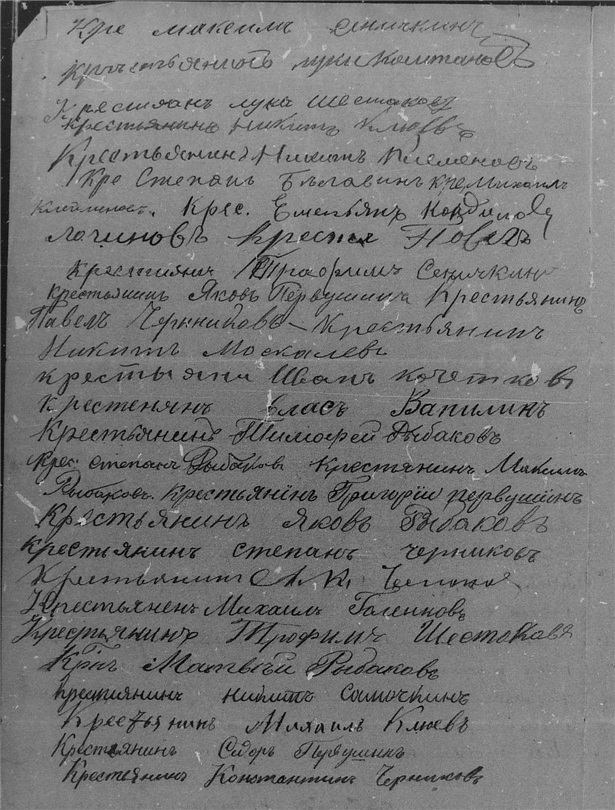 Кре максимъ Сеничкинъ
луки Колтаковъ
Крестиянъ лука Шестаковъ
Крестьянинъ Никитъ Клюевъ
Крестьянинъ
Кре Степанъ Бѣлавинъ кре Михаилъ
Крес. Емельянъ
Логиновъ Павелъ
Крестиянин Трофимъ Сеничкинъ
Крестьянинъ Яковъ Первушинъ Крестьянинъ
Павелъ Черниковъ – Крестьянинъ
Никитъ Москалевъ
крестьянин Иванъ Кочетковъ
Крестенянъ Власъ Вапилинъ
Крестьянинъ Тимофей Рыбаковъ
Крес. Степанъ Рыбаковъ Крестянинъ Максимъ
Рыбаковъ. Крестьянінъ Григорій первушінъ
Крѣстьянинъ Яковъ Рыбаковъ
Крестиянинъ степанъ черниковъ
Крестьянинъ
Крестьяненъ Михаилъ Галенковъ
Крестьянинъ Трофимъ Шестоковъ
Крнъ Матвѣй Рыбаковъ
Крестиянинъ никитъ Симочкинъ
Крестьянинъ Михаилъ Клюевъ
Крестеянинъ Сидоръ Первушинъ
Крестеянинъ Константинъ Черниковъ